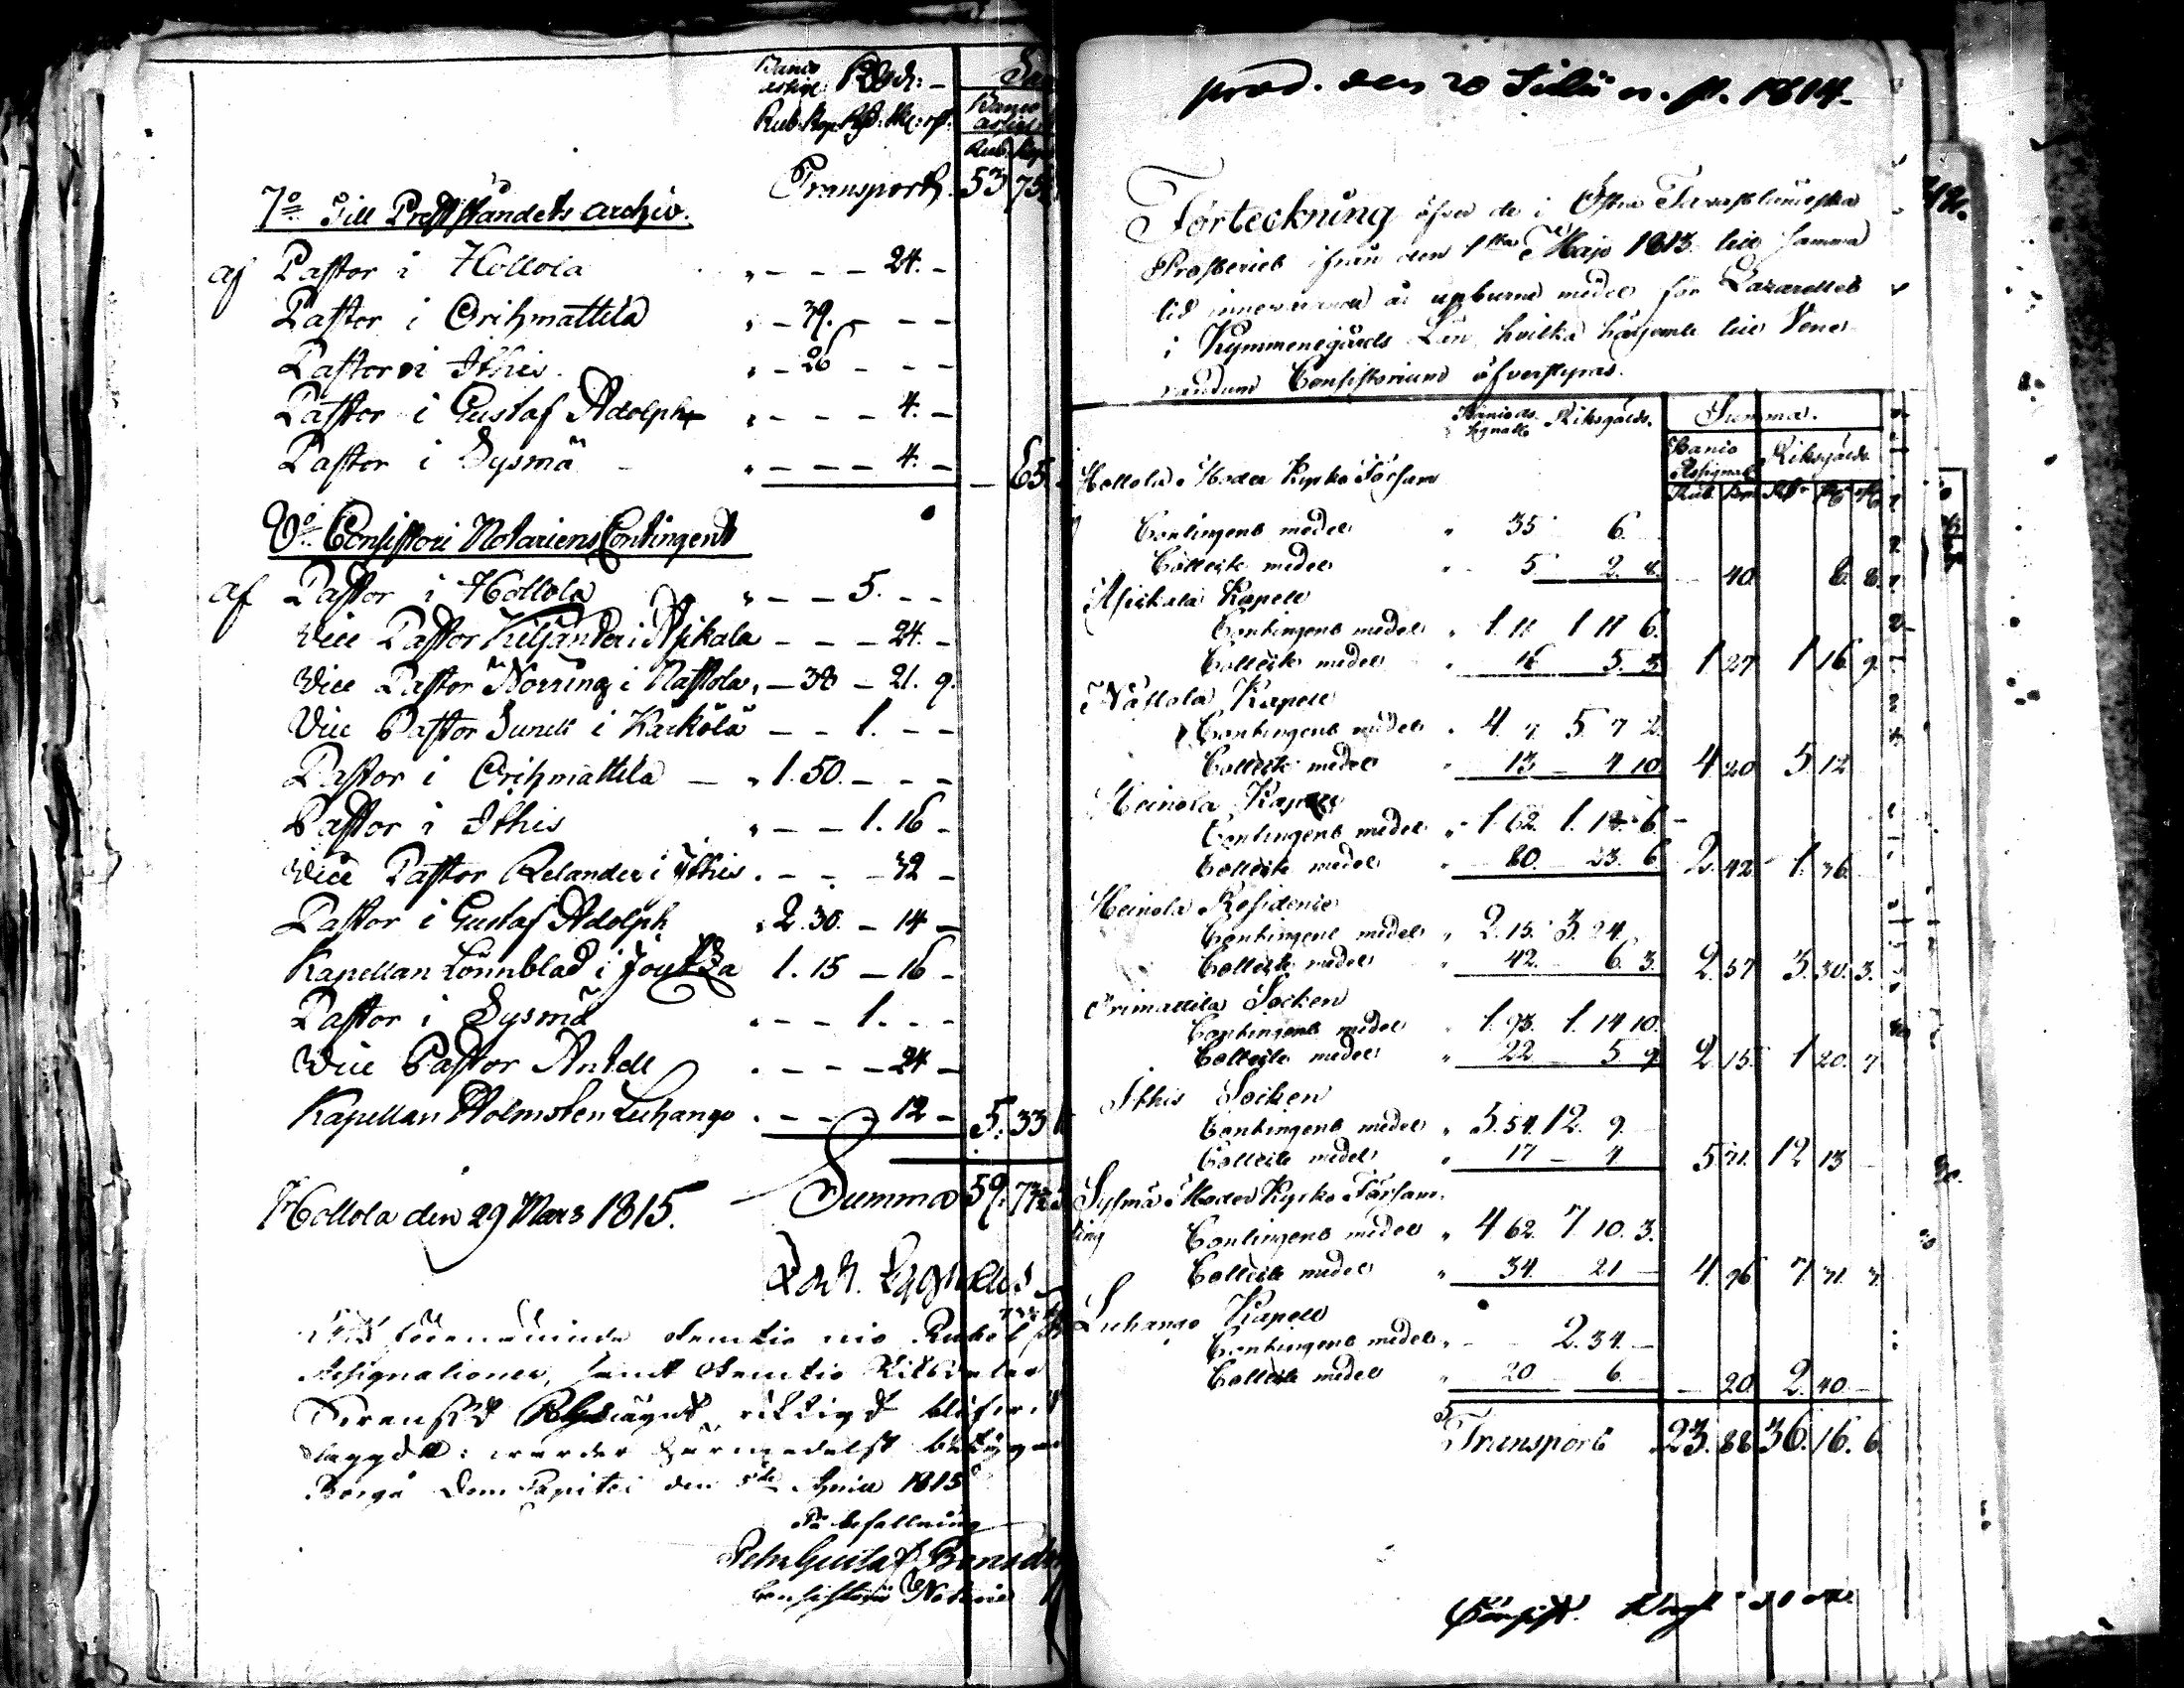 Banco
assign: Rgd:
Rub: Kop: Rd: sk: rst:
Banco
assign
Rub Kop
Transport. 53 75
7:o Till Prestståndets archiv.
af Pastor i Hollola " - - - 24. -
Pastor i Orihmattila " - 39. - - -
Pastor i Ithis " - 26 - - -
Pastor i Gustaf Adolph " - - - 4. -
Pastor i Sysmä " - - - 4. - - 65.
8:o Consistorii Notariens Contingent
af Pastor i Hollola " - - 5. - -
Vice Pastor Kiljander i Asikala - - - 24. -
Vice Pastor Norring i Nastola " - 38 - 21. 9.
Vice Pastor Sunell i Kärkölä - - 1. - -
Pastor i Orihmattila - " 1. 50. - - -
Pastor i Ithis " - - 1. 16 -
Vice Pastor Relander i Ithis . - - - 32 -
Pastor i Gustaf Adolph " 2. 30. - 14 -
Kapellan Lönnblad i Joutza 1. 15 - 16 -
Pastor i Sysmä . - - 1. - -
Vice Pastor Antell . - - - 24 -
Kapellan Holmsten Luhango . - - - 12 - 5. 33
Summa 59. 73
Hollola den 29 Mars 1815.
Zach. Cygnæus
Att förenämnde femtio nio Rubel
Assignationer, samt femtio Riksdaler
Svenskt Riksgäld, riktigt blifvit
aflagde: warder härmedelst
Borgå Dom Capitel den 5te April 1815
På befallning
Pehr Gustaf
Consistorii Notarie
prod. den 20 Julii n. st. 1814.
Förteckning öfver de i Östra Tavastländska
Prosteriet ifrån den 1sta Maji 1813 till samma
tid innevarande år upburne medel för Lazarettet
i Kymmenegårds Län, hvilka härjemte till Vene-
randum Consistorium öfverstyras.
Banco As-
signatr Riksgälds. Summa.
Banco
Assignat. Riksgälds
Rub Kop Rd sk rst
Hollola Moder Kyrko Församl
Contingent medel " 35 6.
Collecte medel " 5 2. 8. - 40 8. 8.
Asickala Kapell
Contingent medel " 1. 11 1 11 6.
Collecte medel " 16 5. 3 1 27 1 16 9.
Nastola Kapell
Contingent medel " 4. 7 5. 7 2.
Collecte medel " 13 - 4 10 4 20 5 12
Heinola Kapell
Contingent medel " 1. 62. 1. 12. 6
Collecte medel " 80. 23. 6 2. 42 1. 36
Heinola Residence
Contingent medel " 2. 15. 3. 24.
Collecte medel " 42. 6. 3. 2. 57 3. 30. 3.
Orimattila Socken
Contingent medel " 1. 93. 1. 14 10.
Collecte medel " 22 5 9 2. 15. 1 20. 7
Ithis Socken
Contingent medel " 5. 54. 12. 9.
Collecte medel " 17 - 4 5 71. 12 13
Sysmä Moder Kyrko Församl
ling Contingent medel " 4 62. 7 10. 3.
Collecte medel " 34. 21 - 4 96 7 31. 3.
Luhango Kapell
Contingent medel " - - 2. 34. -
Collecte medel " 20 6. - 20 2. 40 -
Transport 23. 88 36. 16. 6.